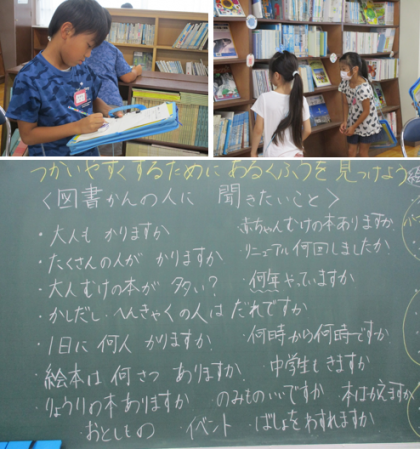 つかいやすくするために あるくふうを 見つけよう
〈図書かんの人に 聞きたいこと〉
・大人も かりますか
・たくさんの人が かりますか
・大人むけの本が 多い?
・かしだし・へんきゃくの人は だれですか
・1日に 何人 かりますか
・絵本は 何さつ ありますか
・りょうりの本 ありますか
・おとしもの
赤ちゃんむけの本ありますか
・リニューアル何回しましたか
・何年やっていますか
・何時から何時ですか
・中学生もきますか
・のみものいいですか
・本はかえますか
・イベント
・ばしょをわすれますか